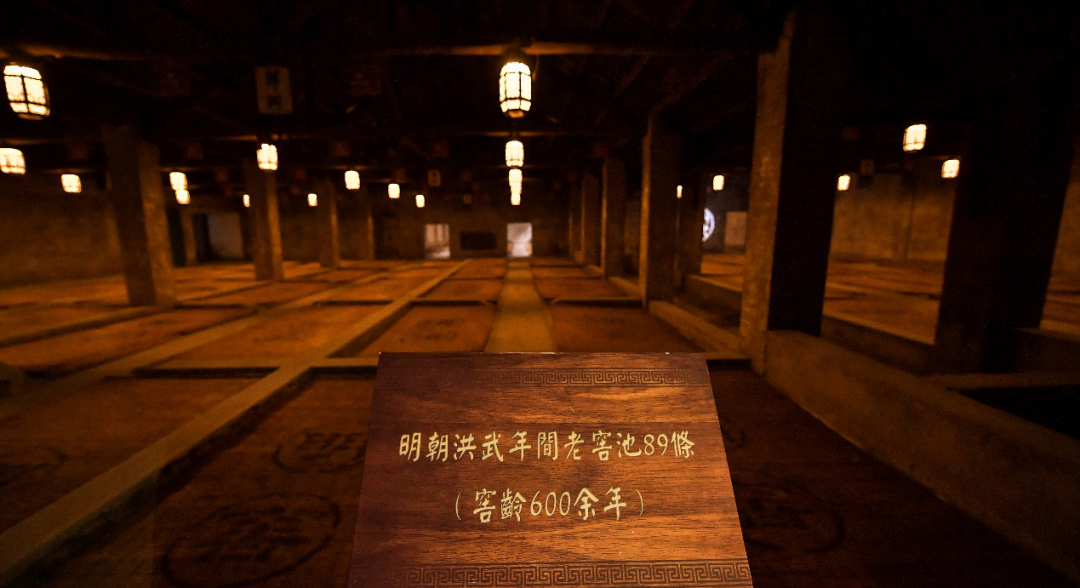 明朝洪武年間老窖池89條
（窖齡600余年）